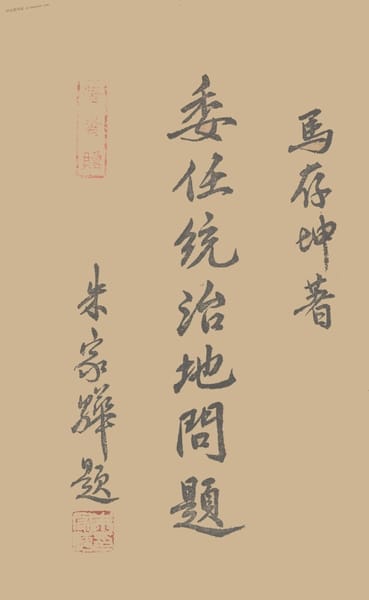 馬存坤著
委任統治地問題
朱家驊題